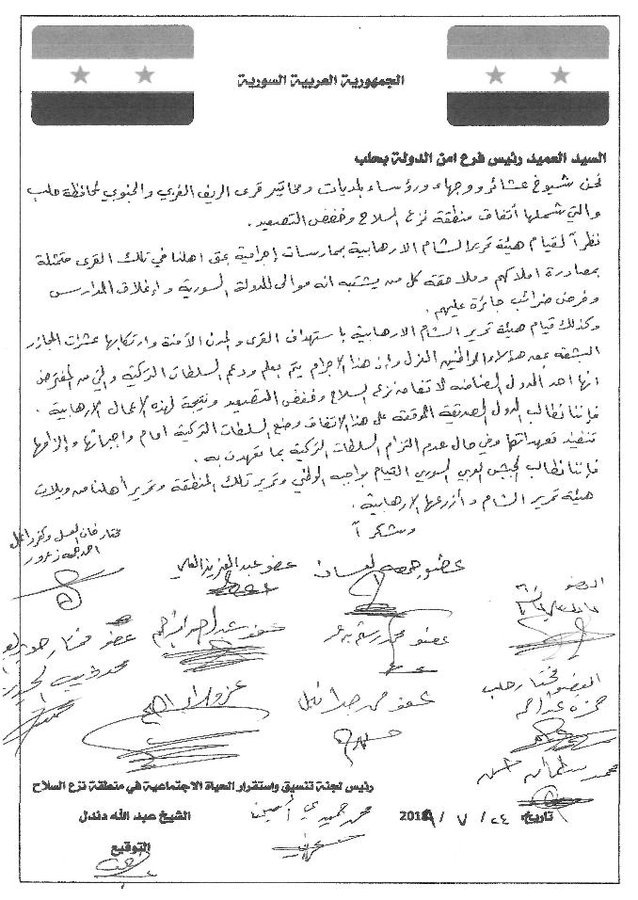 الجمهورية العربية السورية
السيد العميد رئيس فرع امن الدولة بحلب
نحن شيوخ عشائر ووجهاء ورؤساء بلديات ومخاتير قرى الريف الغربي والجنوبي لمحافظة حلب
والتي شملها أتفاق منطقة نزع السلاح وخفض التصعيد.
نظراً لقيام هيئة تحرير الشام الارهابية بممارسات إجرامية بحق اهلنا في تلك القرى متمثلة
بمصادرة املاكهم وملاحقة كل من يشتبه انه موالي للدولة السورية وإغلاق المدارس
وفرض ضرائب جائرة عليهم.
وكذلك قيام هيئة تحرير الشام الارهابية باستهداف القرى والمدن الآمنة وارتكابها عشرات المجازر
البشعة بحق هؤلاء المواطنين العزل وإن هذا الإجرام يتم بعلم ودعم السلطات التركية والتي من المفترض
انها احد الدول الضامنه لاتفاق نزع السلاح وخفض التصعيد ونتيجة لهذه الاعمال الارهابية.
فإننا نطالب الدول الصديقة الموقعة على هذا الاتفاق وضع السلطات التركية امام واجباتها وإلزامها
تنفيذ تعهداتها وفي حال عدم التزام السلطات التركية بما تعهدت به.
فإننا نطالب الجيش العربي السوري القيام بواجبه الوطني وتحرير تلك المنطقة وتحرير أهلنا من ويلات
هيئة تحرير الشام وأزرعها الإرهابية.
وشكراً
مختار خان العسل وكفر داعل
احمد جمعه زعرور
عضو عبد العزيز العلي
عضو جمعه العساف
العضو
عضو محمد رستم بدعر
عضو مختار
محمد ديب
العضو مختار حلب
حمزه عبد
عضو محمد جدا
محمد سلمان حسن
رئيس لجنة تنسيق واستقرار الحياة الاجتماعية في منطقة نزع السلاح
الشيخ عبد الله دندل
محمد حميدي
تاريخ: ٢٤ / ٧ / 2019
التوقيع